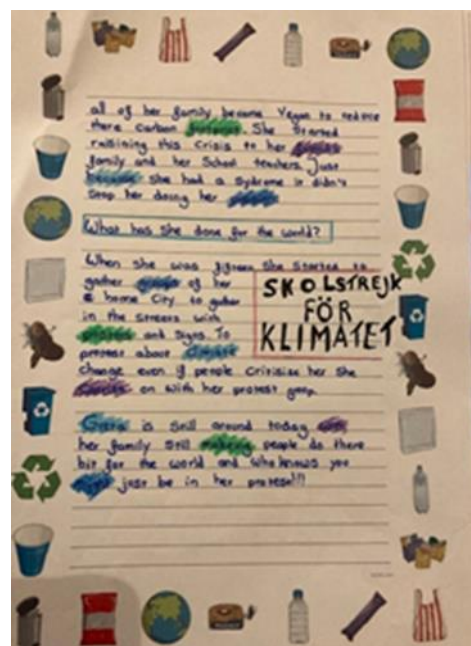 all of her family became Vegan to reduce
there Carbon footprint. She Started
raisining this Crisis to her
family and her School teachers. Just
because she had a Sydrome it didn't
Stop her doing her
What has She done for the world?
When she was fifteen She Started to
gather groups of her
home City to gather
in the Streets with
and Signs. To
protest about Climate
Change even if people Critisise her She
on with her protest
SKOLSTREJK
FÖR
KLIMATET
Greta is Still around today with
her family Still making people do there
bit for the world and Who knows you
just be in her protest!!!